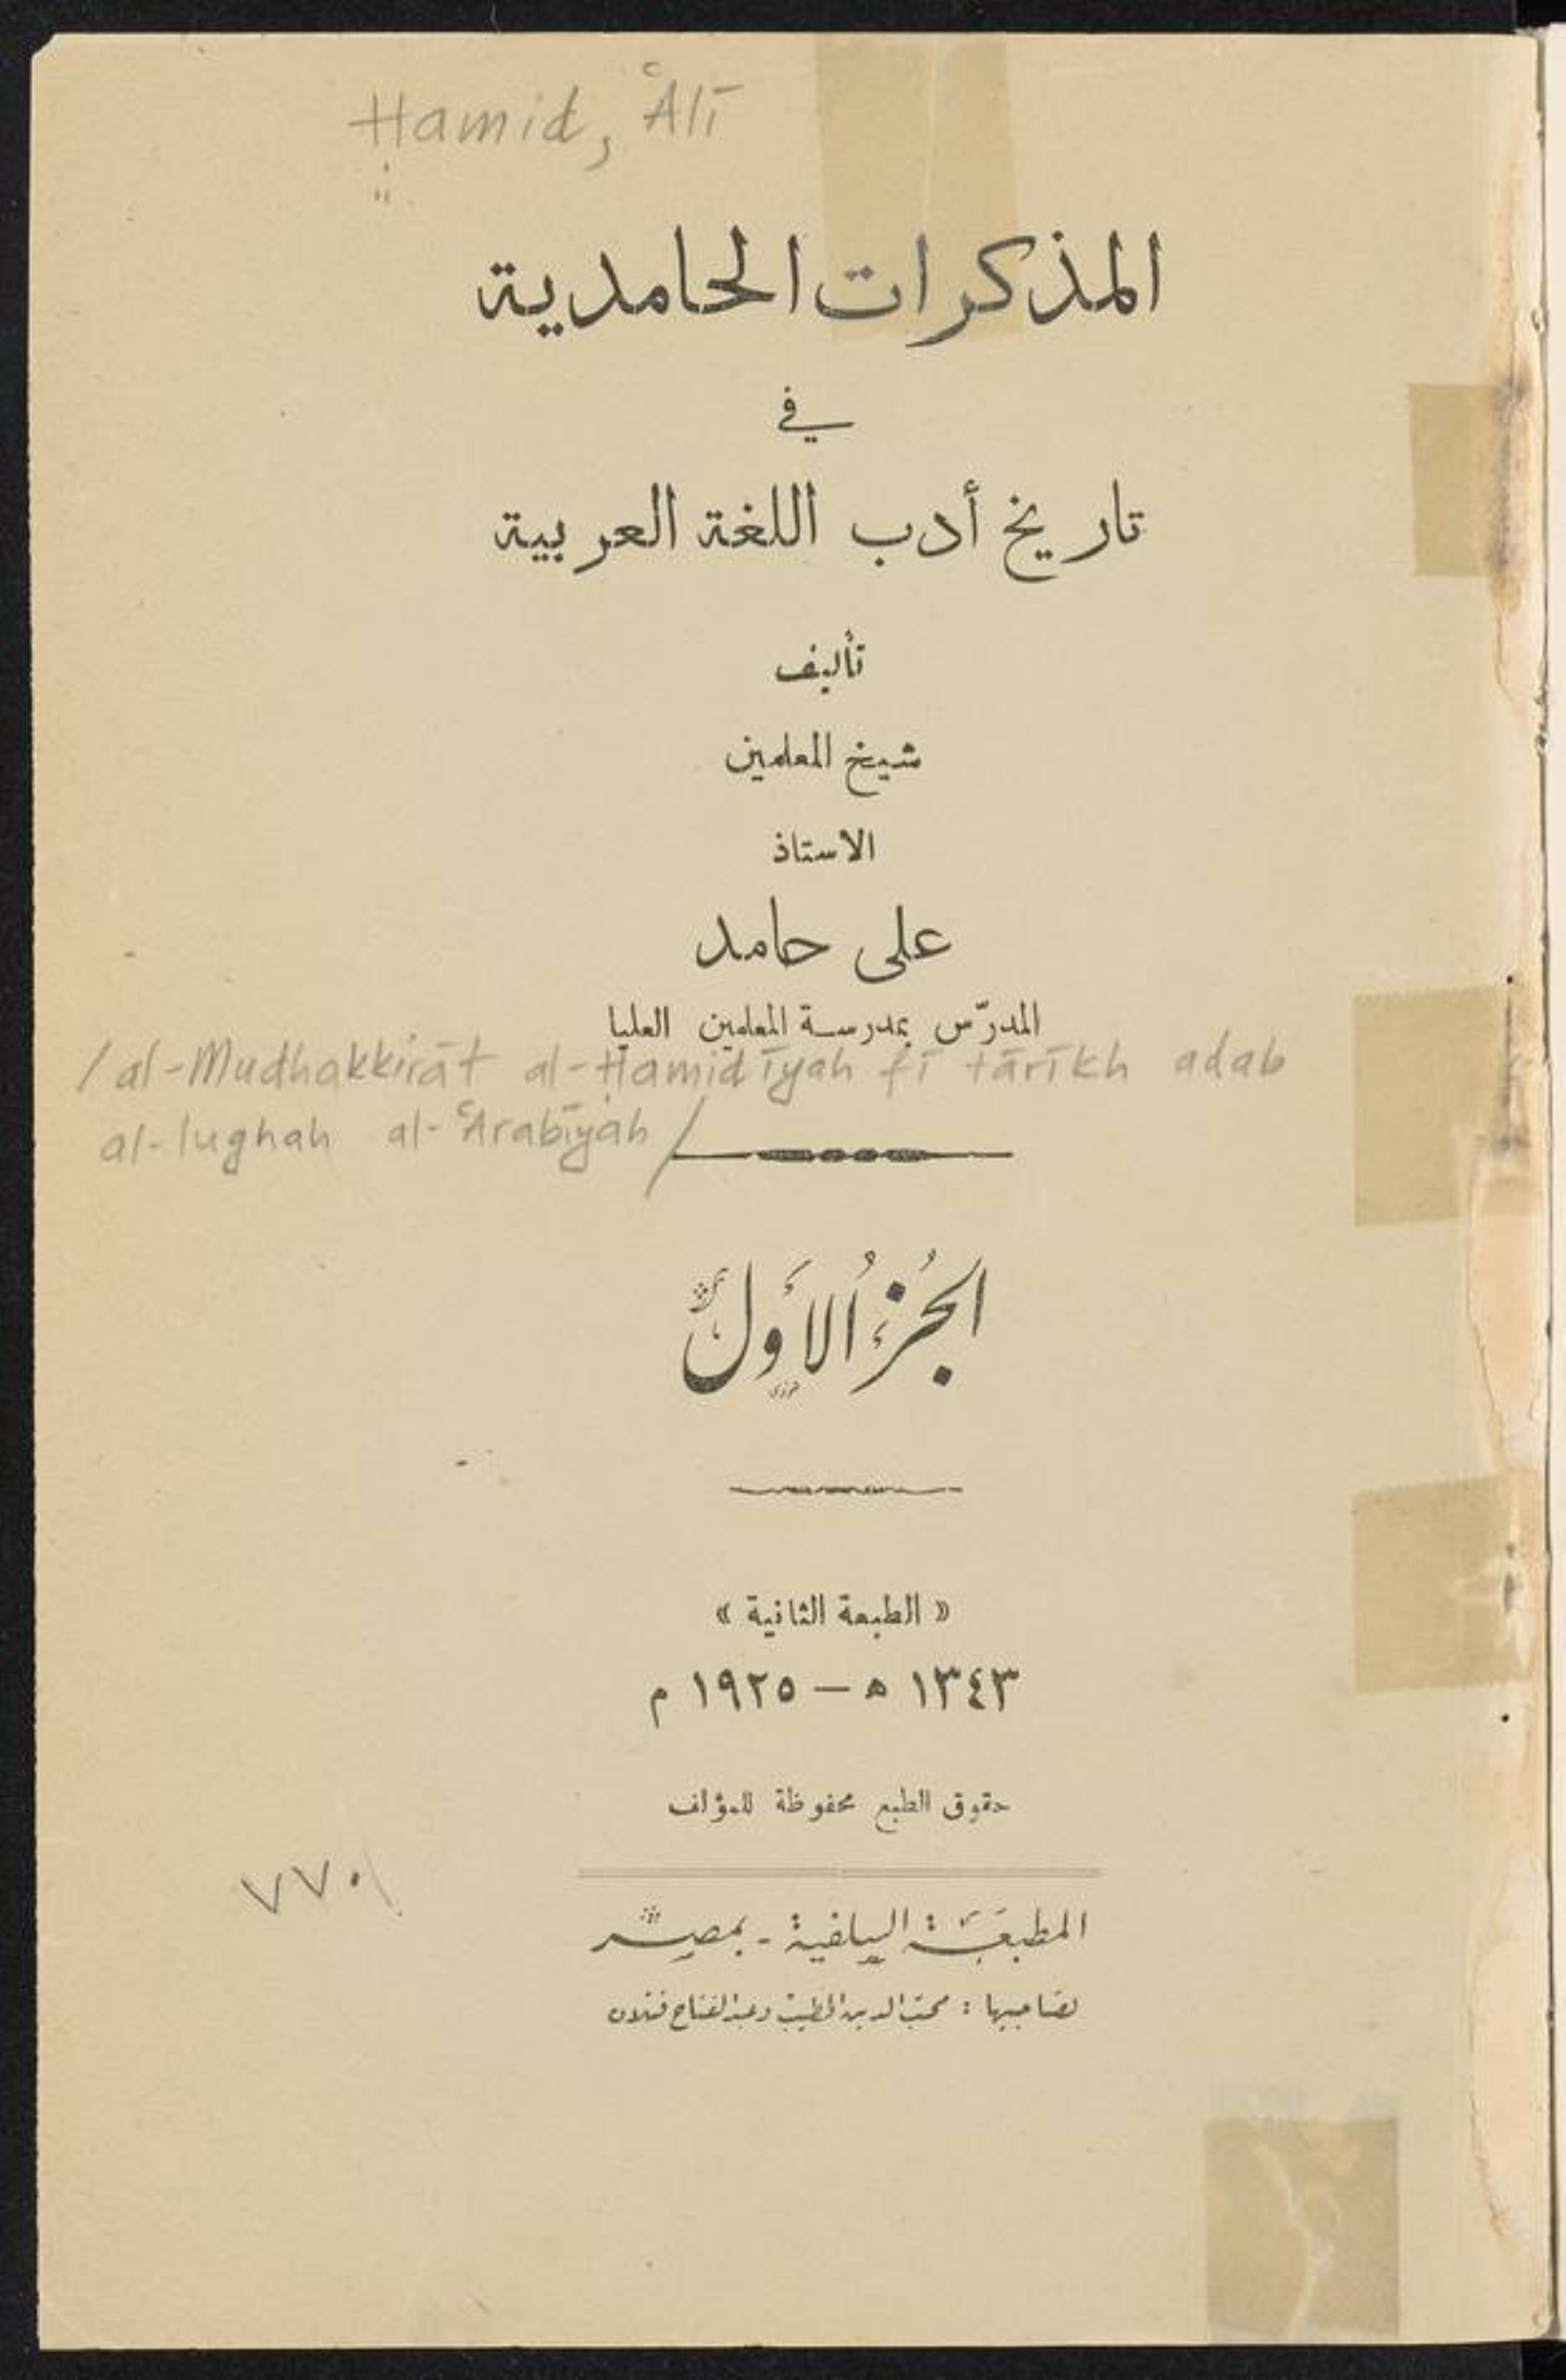 Ḥamid, ʿAlī
المذكرات الحامدية
في
تاريخ أدب اللغة العربية
تأليف
شيخ المعلمين
الاستاذ
على حامد
المدرّس بمدرسة المعلمين العليا
/al-Mudhakkirāt al-Ḥamidīyah fī tārīkh adab
al-lughah al-ʿArabīyah/
الجُزءُ الأَولُ
« الطبعة الثانية »
١٣٤٣ ه — ١٩٢٥ م
حقوق الطبع محفوظة للمؤلف
٧٧٠١
المطبعَة السلفية - بمصر
لصَاحبيها : محب الدين الخطيب وعبد الفتاح قتلان